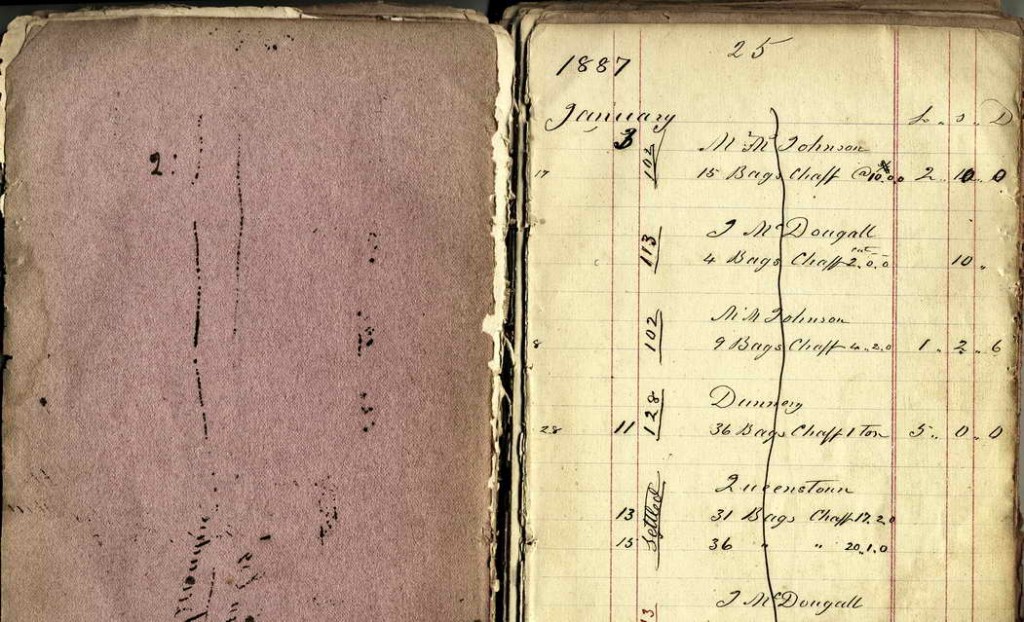 2:
25
1887
January L. s. D
3 102 Mc M Johnson
17 15 Bags Chaff @ 10.0.0 2 10 0
113 J McDougall
4 Bags Chaff 2.0.0 10
102 M M Johnson
8 9 Bags Chaff 4.2.0 1 2 6
128 Dunnery
28 11 36 Bags Chaff 1 Ton 5 0 0
Settled Queenstown
13 31 Bags Chaff 17.2.0
15 36 " " 20.1.0
J McDougall